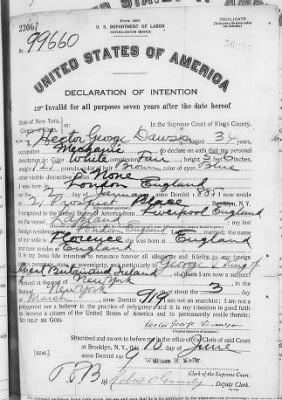 TRIPLICATE
Form 2203
23667
U. S. DEPARTMENT OF LABOR
NATURALIZATION SERVICE
99660
UNITED STATES OF AMERICA
DECLARATION OF INTENTION
Invalid for all purposes seven years after the date hereof
State of New York,
County of Kings,
In the Supreme Court of Kings County.
I, Hector George Dawson, aged 34 years,
occupation Mechanic, do declare on oath that my personal
description is: Color White, complexion Fair, height 5 feet inches,
weight pounds, color of hair Brown, color of eyes Blue
other visible distinctive marks None
I was born in London England
on the day of January, anno Domini 1885; I now reside
at Prospect Place Brooklyn, N. Y.
I emigrated to the United States of America from Liverpool England
my last
foreign residence was London England; the name
of my wife is Florence; she was born at England
and resides at England
It is my bona fide intention to renounce forever all allegiance and fidelity to any foreign
prince, potentate, state, or sovereignty, and particularly to George V King of
Great Britain and Ireland, of whom I am now a subject;
I arrived at the port of New York, in the
State of New York, on or about the 3 day
of March, anno Domini 1919; I am not an anarchist; I am not a
polygamist nor a believer in the practice of polygamy; and it is my intention in good faith
to become a citizen of the United States of America and to permanently reside therein:
SO HELP ME GOD.
Hector George Dawson
Subscribed and sworn to before me in the office of the Clerk of said Court
at Brooklyn, N. Y., this 10 day of June
anno Domini 1919
[SEAL]
William F. Kelly
Clerk of the Supreme Court.
By
Deputy Clerk.